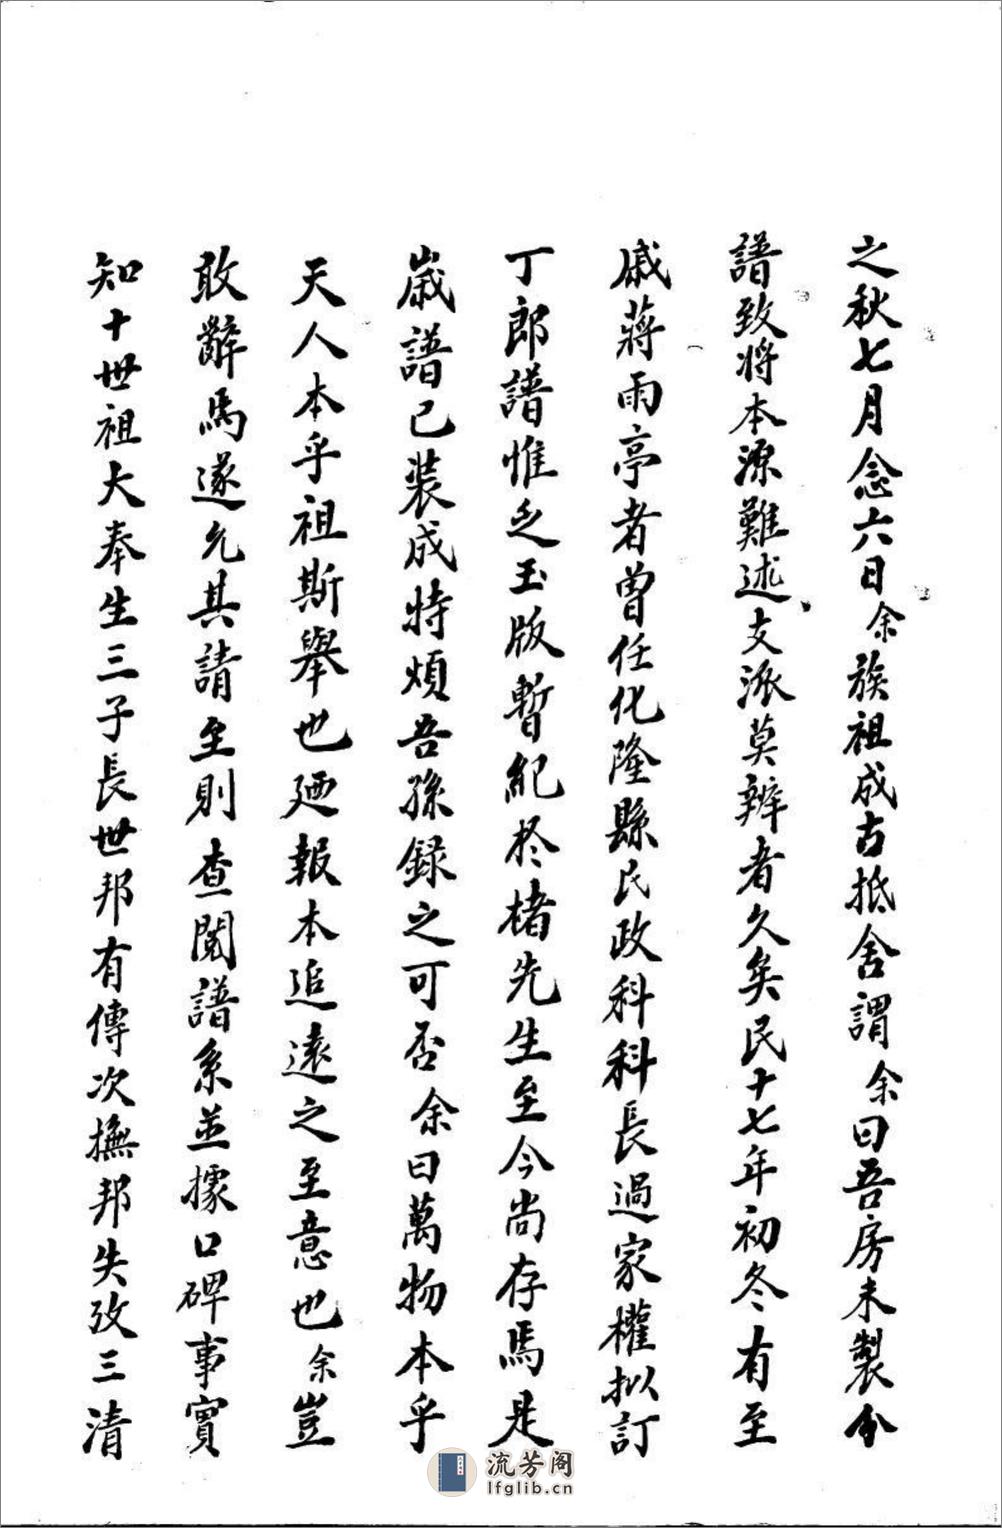 之秋七月念六日余族祖成古抵舍謂余曰吾房未製分
譜致將本源難述支派莫辨者久矣民十七年初冬有至
戚蔣雨亭者曾任化隆縣民政科科長過家權擬訂
丁郎譜惟乏玉版暫紀於楮先生至今尚存焉是
歲譜已裝成特煩吾孫錄之可否余曰萬物本乎
天人本乎祖斯舉也廼報本追遠之至意也余豈
敢辭焉遂允其請至則查閱譜系並據口碑事實
知十世祖大奉生三子長世邦有傳次撫邦失攷三清
流芳阁
lfglib.cn